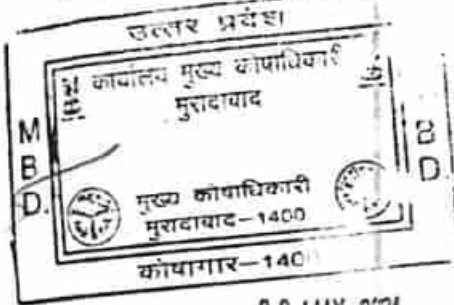 उत्तर प्रदेश
कार्यालय मुख्य कोषाधिकारी
मुरादाबाद
M
B
D.
B
D.
मुख्य कोषाधिकारी
मुरादाबाद-1400
कोषागार-140